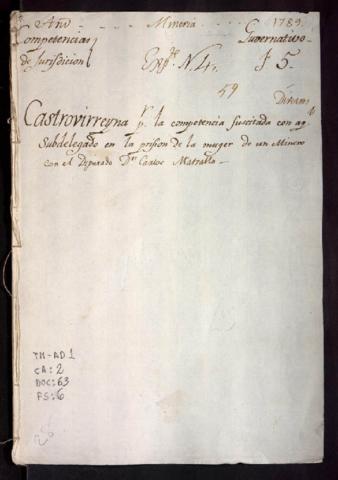 Año . . . Mineria . . . . 1789.
Competencias Gubernativo
de Jurisdicion Exp.te N. 4. f 5
59
Castrovirreyna p.r la competencia suscitada con aq.l
Subdelegado en la prision de la muger de un Minero
con el Diputado D.n Carlos
TM-AD1
CA: 2
DOC: 63
FS: 6